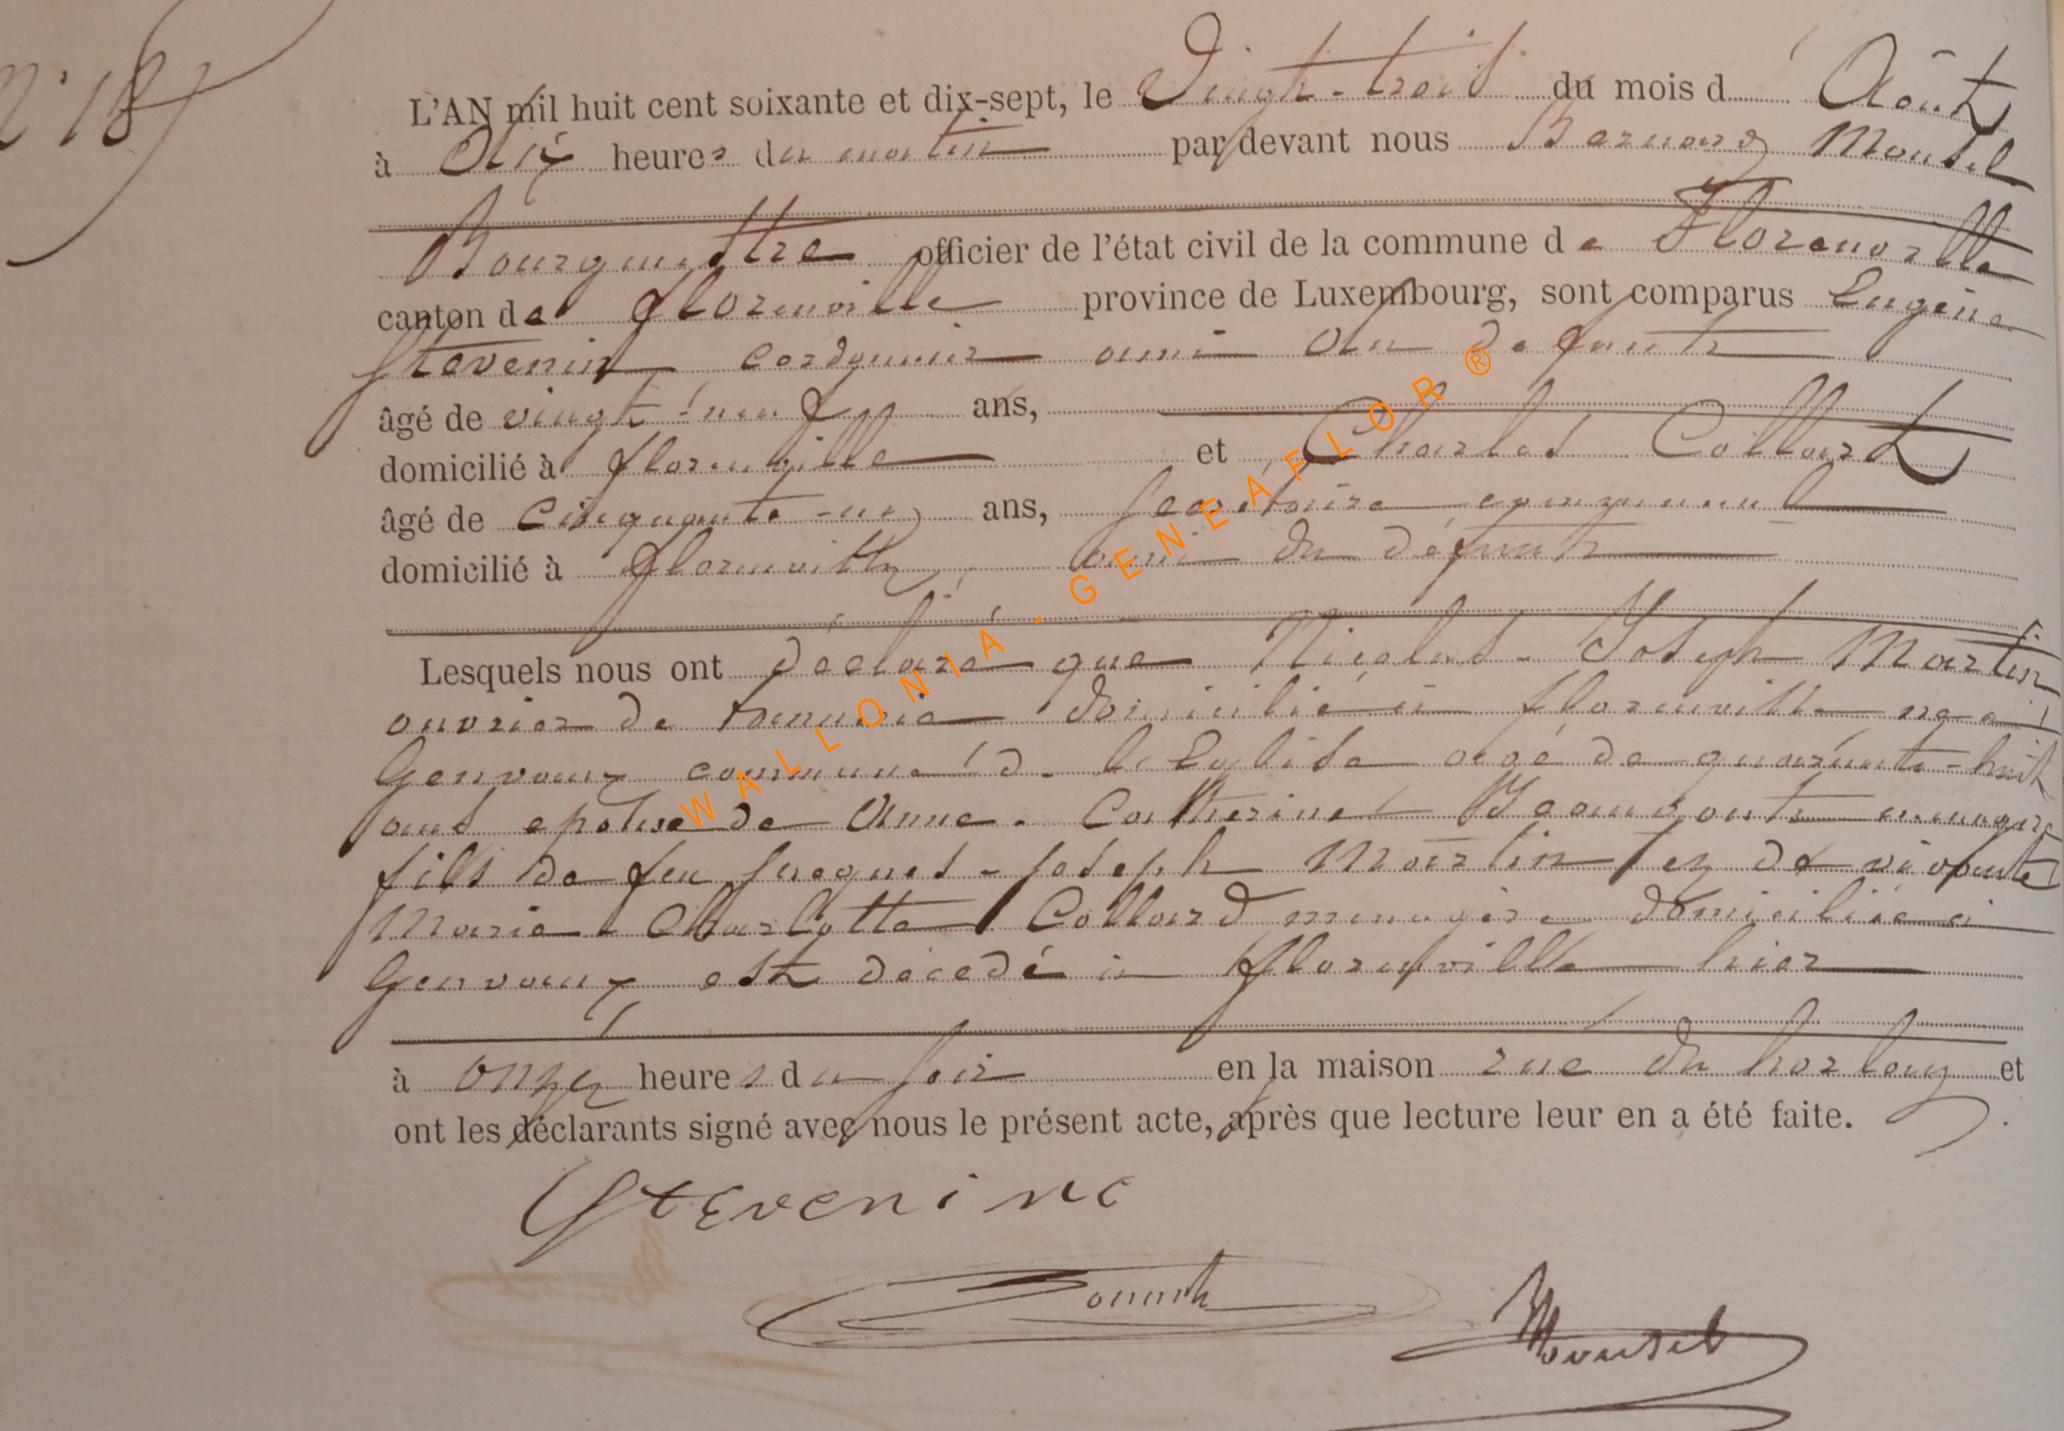 N° 18
L'AN mil huit cent soixante et dix-sept, le Vingt-trois du mois d' Août
à dix heures du matin par devant nous Bernard Mousel
Bourgmestre officier de l'état civil de la commune de Florenville
canton de florenville province de Luxembourg, sont comparus Eugène
Stevenin cordonnier ami du defunt
âgé de vingt-neuf ans,
domicilié à florenville et Charles Collard
âgé de cinquante-un ans, secretaire communal
domicilié à florenville, ami du défunt
Lesquels nous ont déclaré que Nicolas-Joseph Martin
ouvrier de tannerie domicilié à florenville né à
Genvaux commune de l'Eglise agé de quarante-huit
ans epouse de Anne-Catherine menagère
fils de feu Jacques-Joseph Martin et de vivante
Marie Charlotte Collard menagère domiciliée à
Genvaux, est décedé à florenville hier
à onze heures du soir en la maison rué du et
ont les déclarants signé avec nous le présent acte, après que lecture leur en a été faite.
Stevenine
Mousel
WALLONIA - GENEAFLOR ®